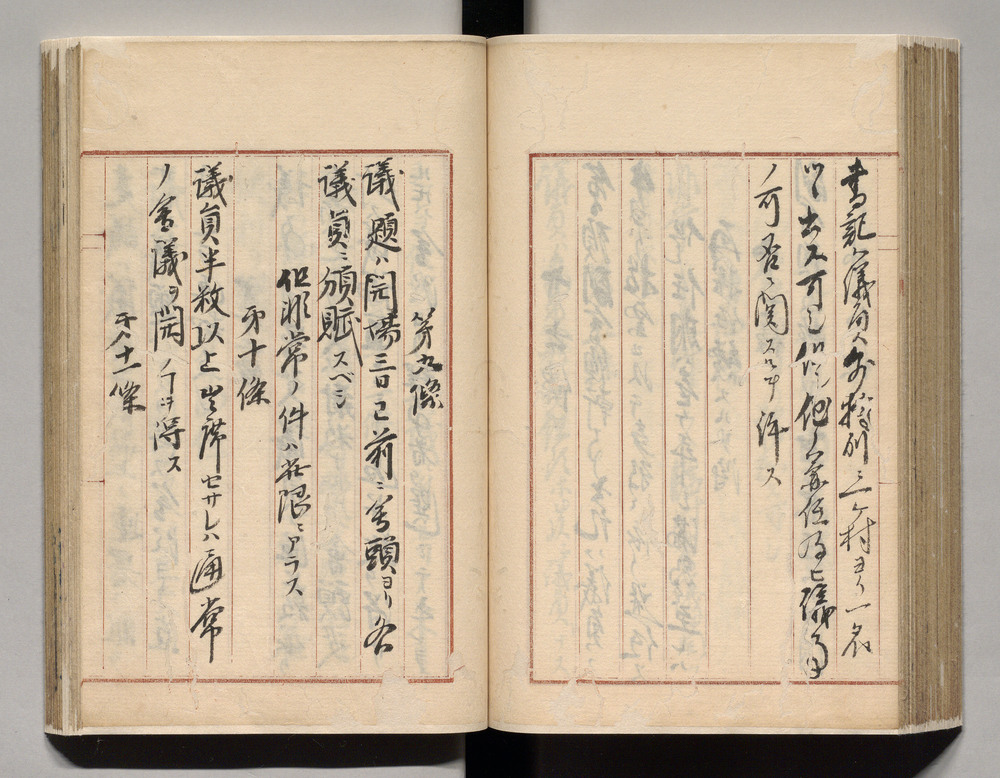 書記ハ議員ノ外特別三ヶ村ヨリ一名
ツヽ出ス可シ但他ノ兼任及ヒ議事
ノ可否ニ関スルヲ許ス
第九條
議題ハ開場三日已前ニ會頭ヨリ各
議員ニ頒賦スベシ
但非常ノ件ハ此限ニアラス
第十條
議員半数以上出席セサレハ通常
ノ會議ヲ開クヿヲ得ス
第十一條